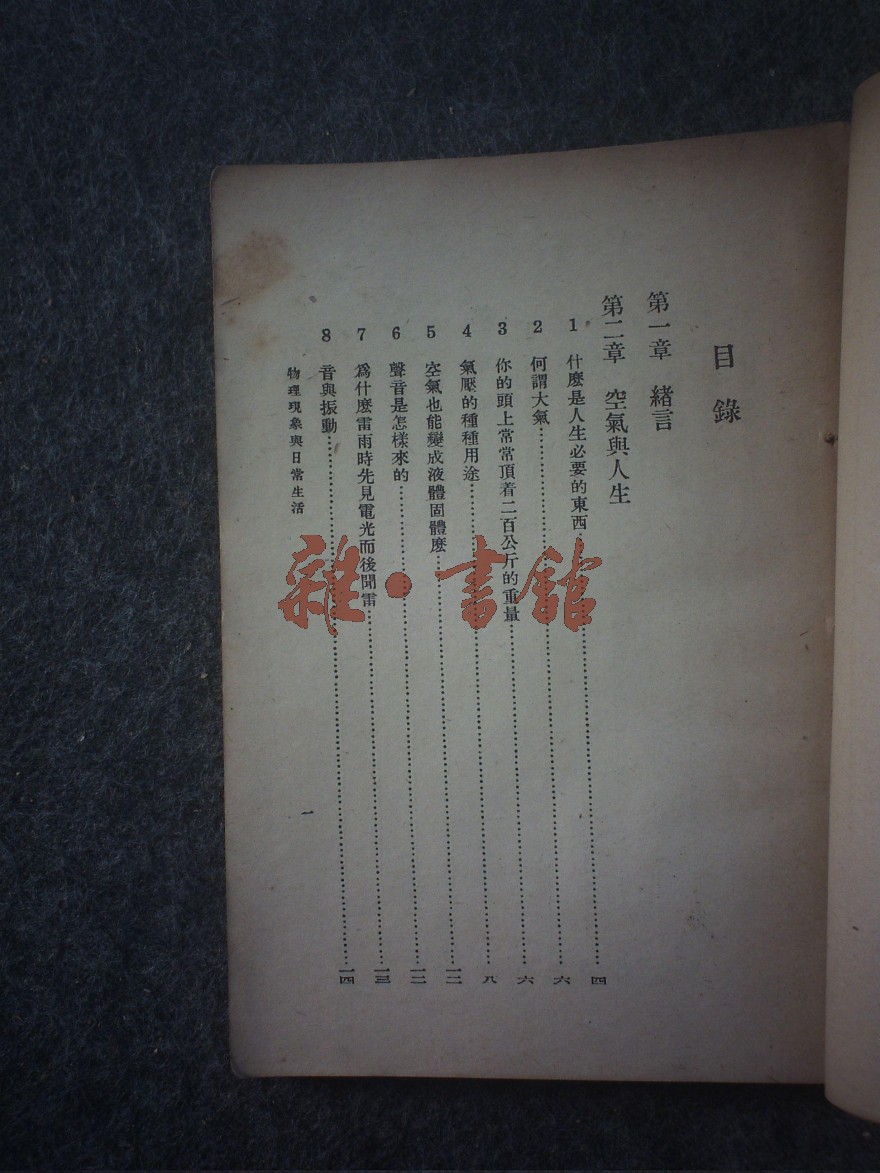 目錄
第一章 緒言
第二章 空氣與人生
1 什麼是人生必要的東西……四
2 何謂大氣……六
3 你的頭上常常頂着二百公斤的重量……六
4 氣壓的種種用途……八
5 空氣也能變成液體固體麼……一二
6 聲音是怎樣來的……一二
7 爲什麼雷雨時先見電光而後聞雷……一三
8 音與振動……一四
物理現象與日常生活
一
雜·書館